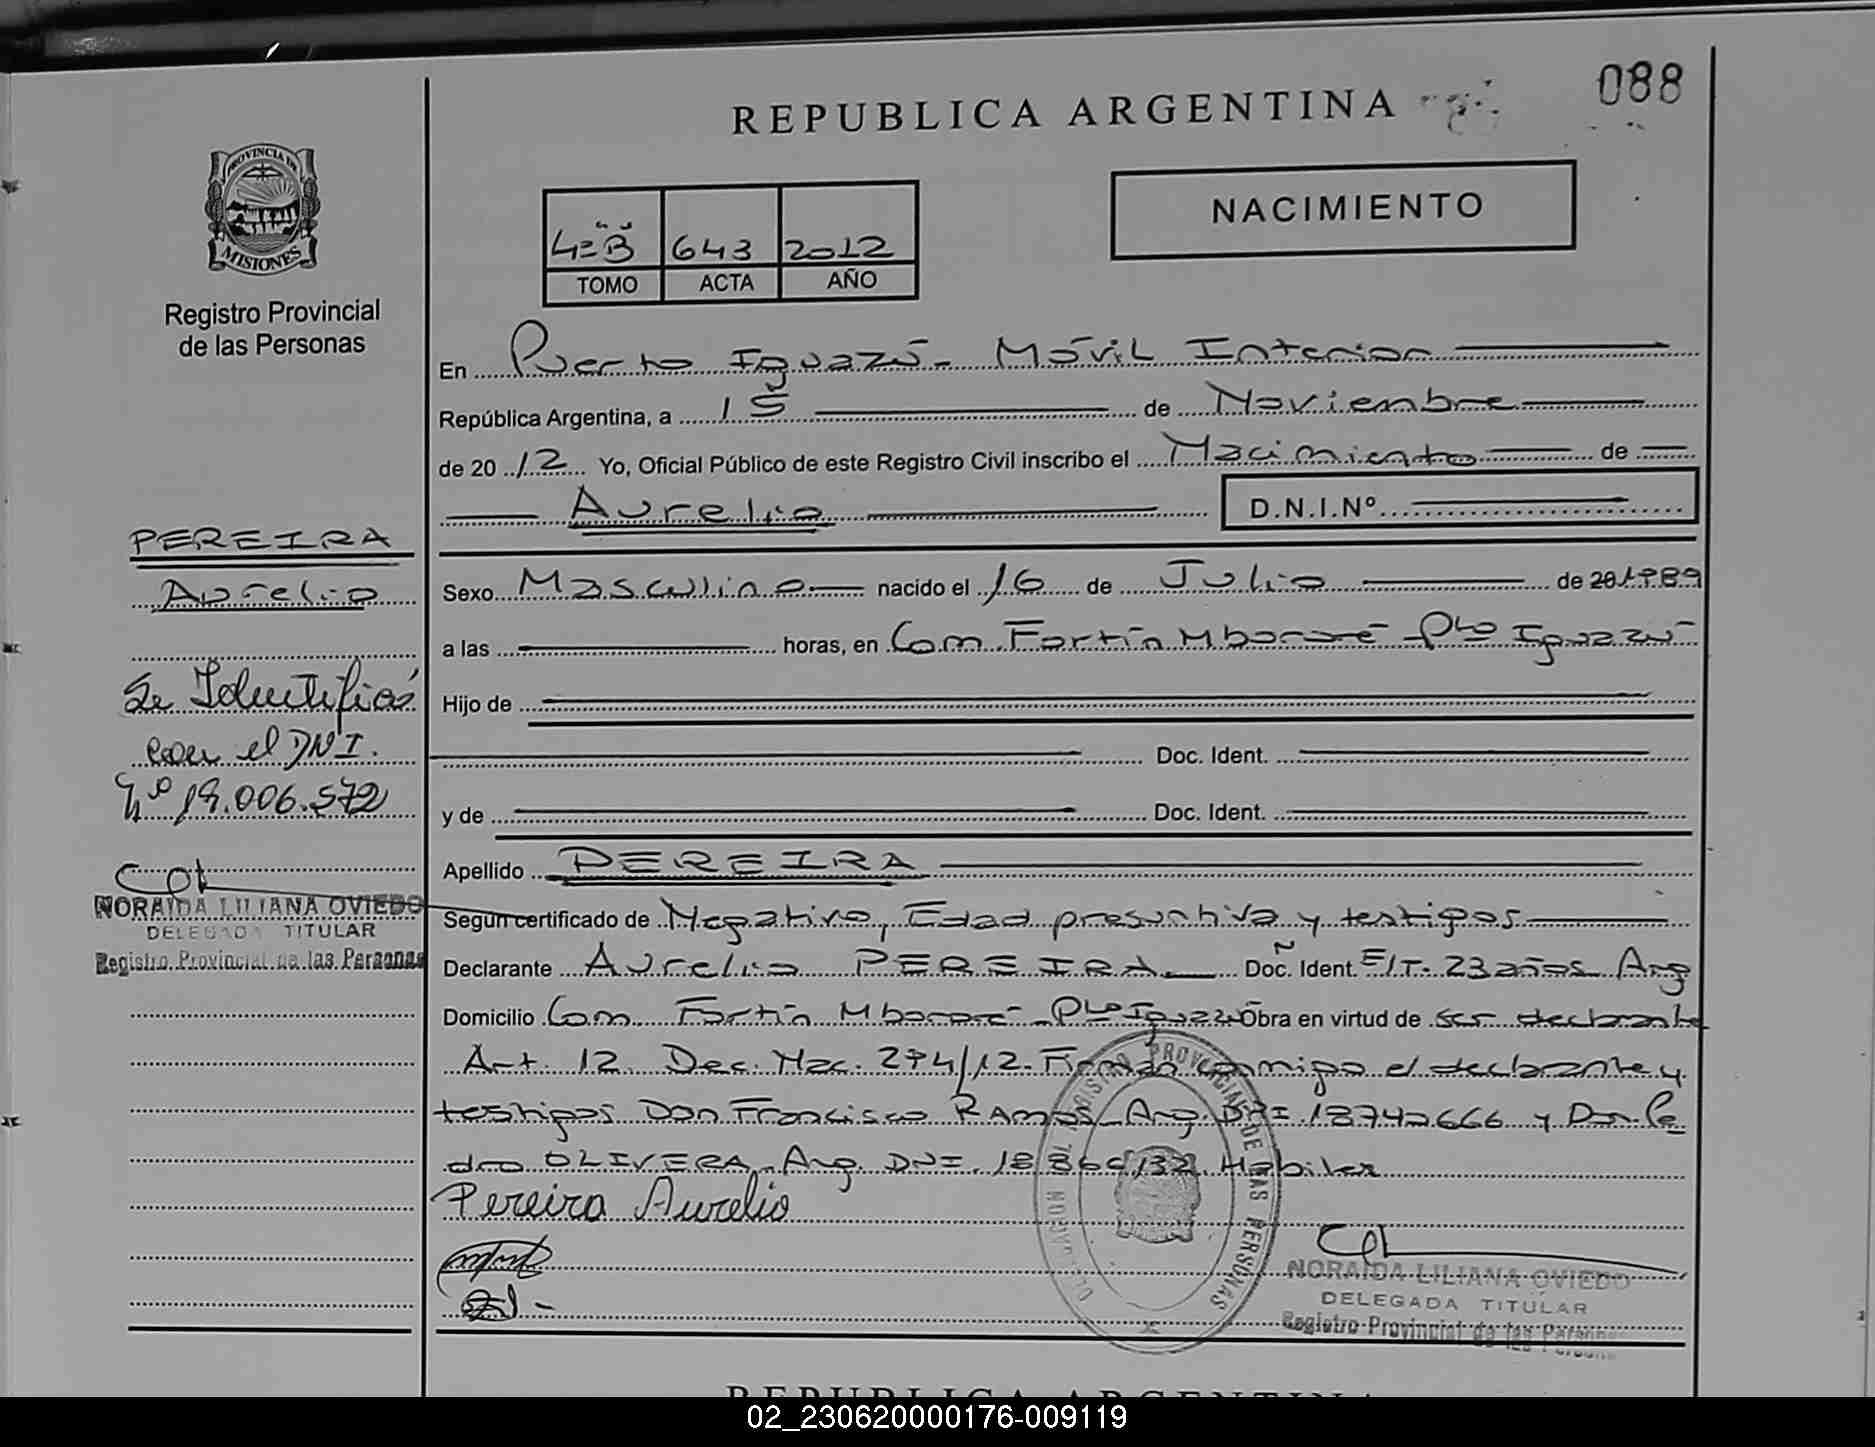 088
REPUBLICA ARGENTINA
NACIMIENTO
4= "B" 643 2012
TOMO ACTA AÑO
PROVINCIA DE
MISIONES
Registro Provincial
de las Personas
En Puerto Iguazú - Móvil Interior
República Argentina, a 15 de Noviembre
de 2012 Yo, Oficial Público de este Registro Civil inscribo el Nacimiento de
Aurelio D.N.I.Nº
PEREIRA
Aurelio
Se Identificó
con el DNI.
Nº 19.006.572
NORAIDA LILIANA OVIEDO
DELEGADA TITULAR
Registro Provincial de las Personas
Sexo Masculino nacido el 16 de Julio de 201989
a las horas, en Com. Fortín Mbororé - Pto Iguazú
Hijo de
Doc. Ident.
y de Doc. Ident.
Apellido PEREIRA
Según certificado de Negativo, Edad presuntiva y testigos
Declarante Aurelio PEREIRA Doc. Ident. E/T. 23 años Arg
Domicilio Com. Fortín Mbororé - Pto Iguazú Obra en virtud de ser declarante
Art. 12 Dec. Nac. 274/12. Firman conmigo el declarante y
testigos Don Francisco RAMOS - Arg. DNI 18742666 y Don Pe
dro OLIVERA, Arg. DNI. Hábiles
Pereira Aurelio
REGISTRO PROVINCIAL DE LAS PERSONAS
NORAIDA LILIANA OVIEDO
DELEGADA TITULAR
Registro Provincial de las Personas
REPUBLICA ARGENTINA
02_230620000176-009119